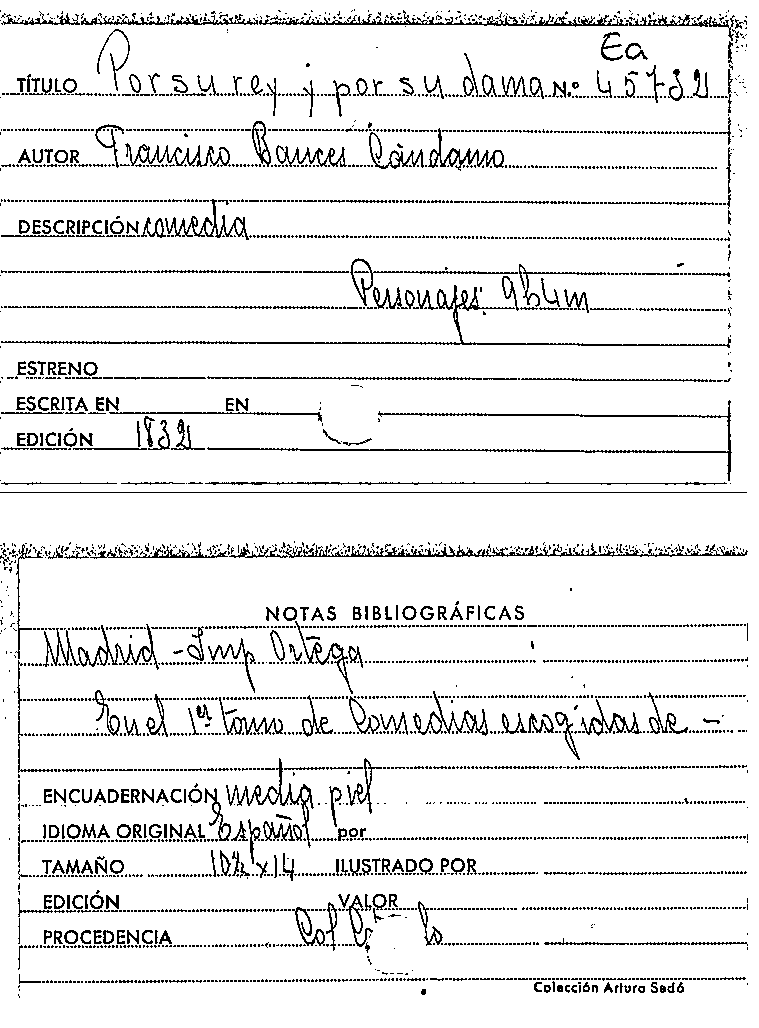 Ea
TÍTULO Por su rey y por su dama N.º 45732
AUTOR Francisco Bances Cándamo
DESCRIPCIÓN comedia
Personajes: 9h4m
ESTRENO
ESCRITA EN EN
EDICIÓN 1832
NOTAS BIBLIOGRÁFICAS
Madrid - Imp Ortega
En el 1er tomo de Comedias escogidas de -
ENCUADERNACIÓN media piel
IDIOMA ORIGINAL Español por
TAMAÑO 10½ x 14 ILUSTRADO POR
EDICIÓN VALOR
PROCEDENCIA Col
Colección Arturo Sedó